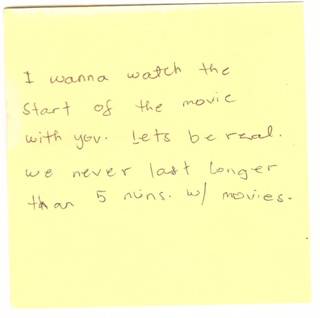 I wanna watch the
start of the movie
with you. Lets be real.
we never last longer
than 5 mins. w/ movies.